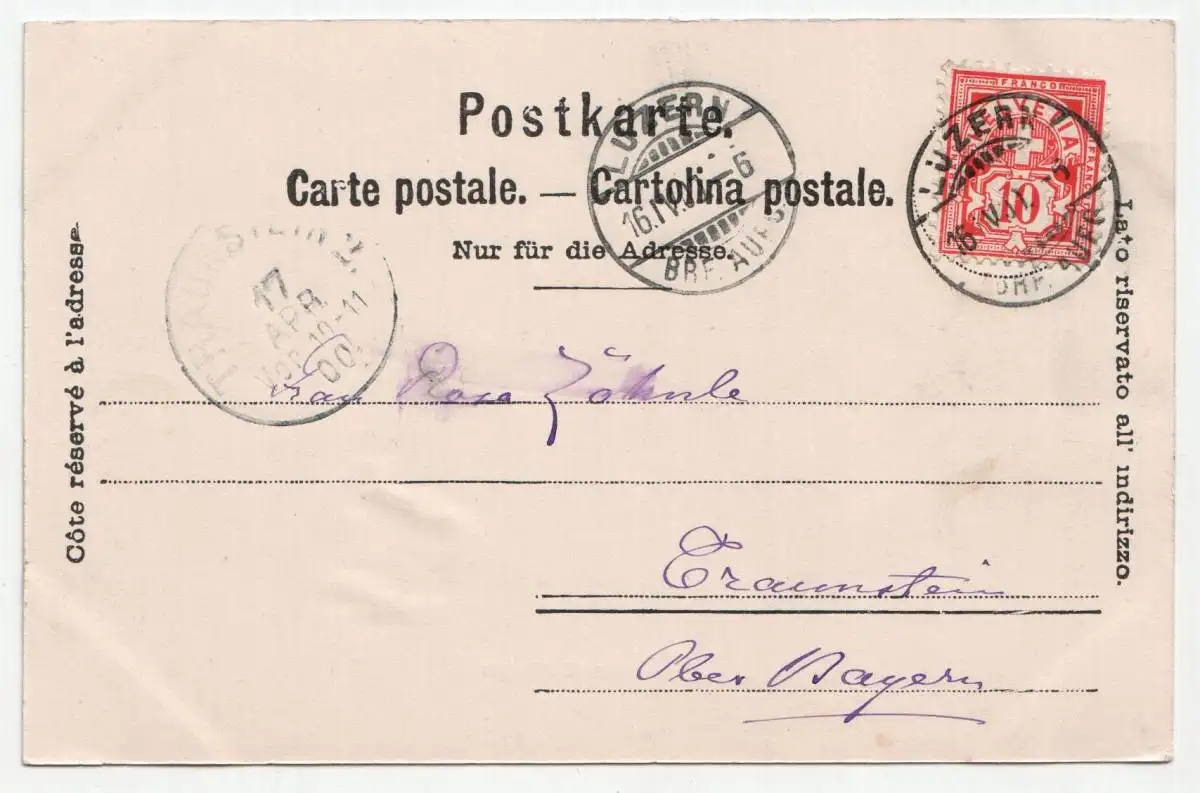 Postkarte.
Carte postale. — Cartolina postale.
Nur für die Adresse.
Côte réservé à l'adresse
Lato riservato all' indirizzo.
FRANCO
HELVETIA
FRANCO
10
LUZERN
16.IV.
BRF. AUFG.
LUZERN
16.IV. –6
BRF. AUFG.
TRAUNSTEIN
17
APR
VOR. 10-11
00.
Frau Rosa Zöhnle
Traunstein
Ober Bayern